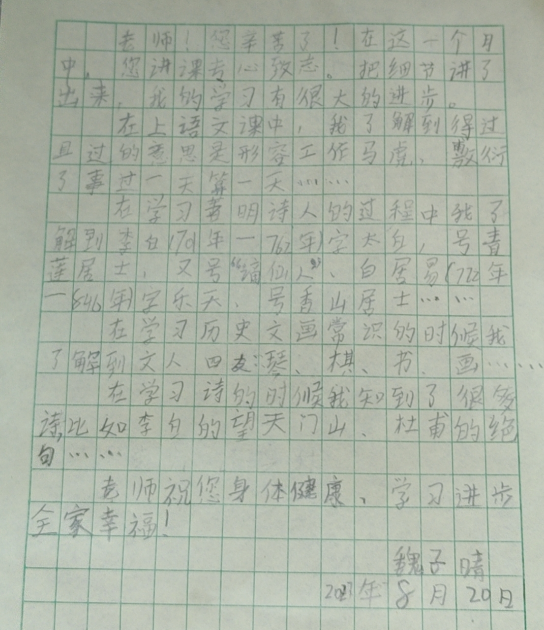 老师！您辛苦了！在这一个月
中，您讲课专心致志。把细节讲了
出来，我的学习有很大的进步。
在上语文课中，我了解到得过
且过的意思是形容工作马虎、敷衍
了事过一天算一天……
在学习著明诗人的过程中我了
解到李白(701年一762年)字太白，号青
莲居士，又号“谪仙人”，白居易(772年
一846年)字乐天、号香山居士……
在学习历史文画常识的时候我
了解到文人四友：琴、棋、书、画……
在学习诗的时候我知到了很多
诗比如李白的望天门山、杜甫的绝
句……
老师祝您身体健康、学习进步
全家幸福！
魏子晴
年8月20日